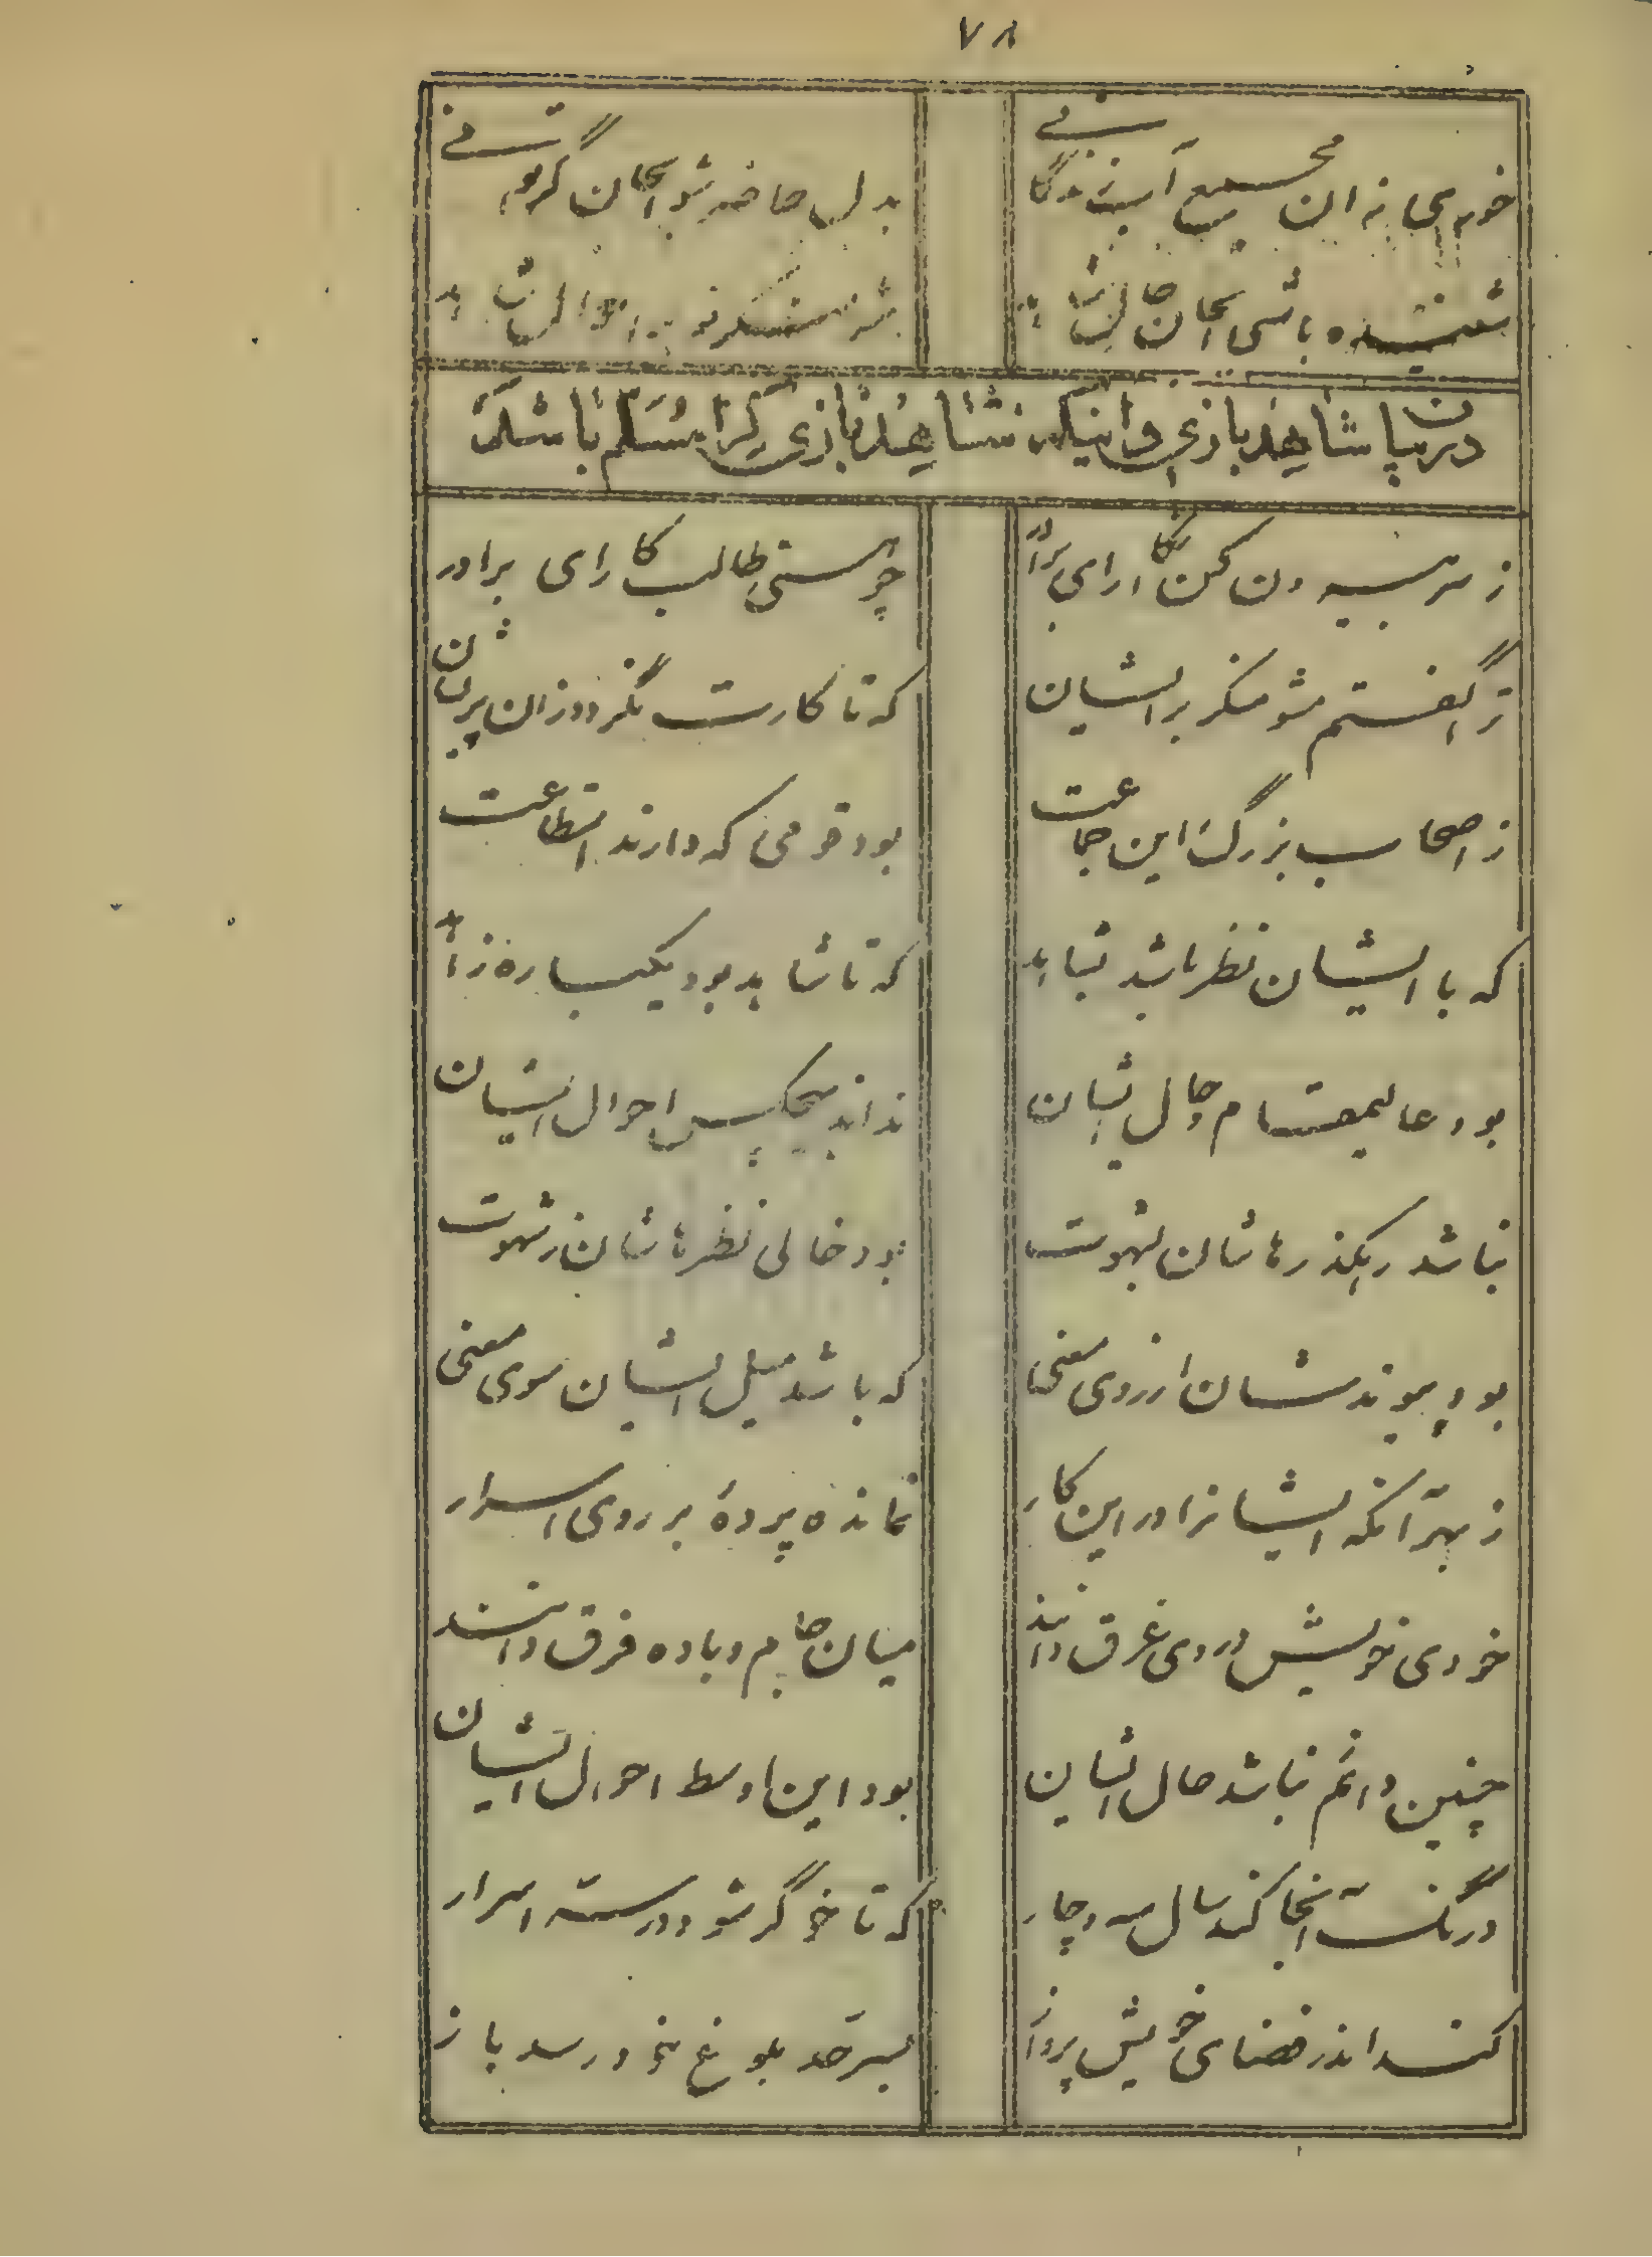 ٧٨
خوری زان مجمع آب زندگانی
بدل حاضر شو آنجا گر توانی
شنیده باشی آنجا حالت
در بیان شاهد بازی و اینکه شاهد بازی کرا مسلم باشد
ز سر بیرون کن انکار ای برادر
چو هستی طالب کار ای برادر
ترا گفتم مشو منکر بر ایشان
که تا کارت نگردد زان پریشان
ز اصحاب بزرگ این جماعت
بود قومی که دارند استطاعت
که با ایشان نظر باشد
که تا شاهد بود یکباره
بود عالی مقام و حال ایشان
نداند هیچکس احوال ایشان
نباشد رهگذرهاشان بشهوت
بود خالی نظرهاشان ز شهوت
بود پیوندشان از روی معنی
که باشد میل ایشان سوی معنی
ز بهر آنکه ایشانرا در این کار
نمانده پردهٔ بر روی اسرار
خودی خویش در وی غرق دانند
میان جام و باده فرق دانند
چنین دائم نباشد حال ایشان
بود این اوسط احوال ایشان
درنگ آنجا کند سال سه و چار
که تا خوگر شود در ستر اسرار
کند اندر فضای خویش پرواز
بسرحد بلوغ خود رسد باز